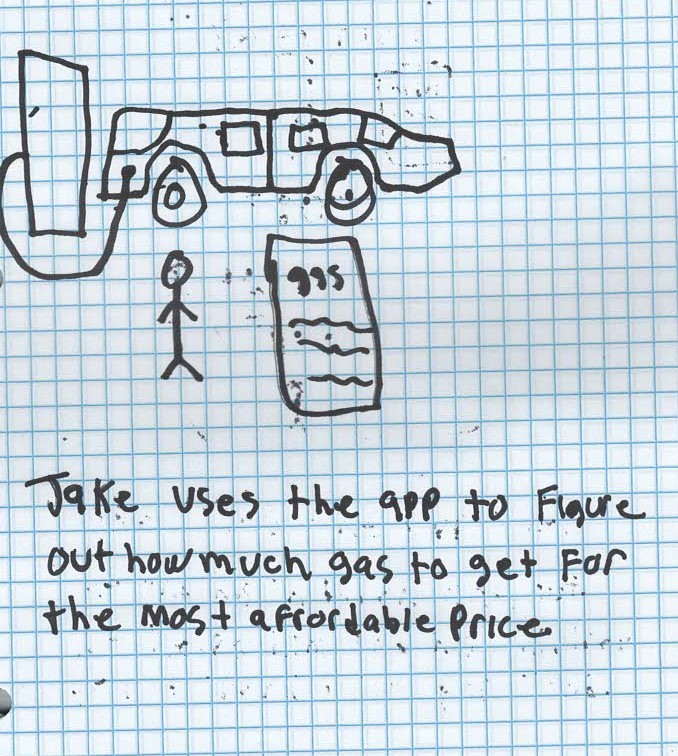 gas
Jake uses the app to Figure
out how much gas to get For
the most affordable Price